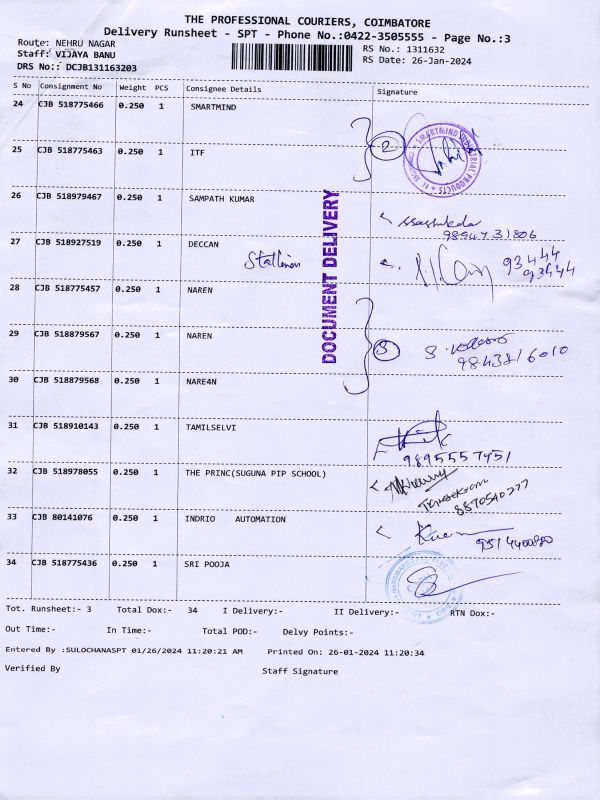 THE PROFESSIONAL COURIERS, COIMBATORE
Delivery Runsheet - SPT - Phone No.:0422-3505555 - Page No.:3
Route: NEHRU NAGAR
RS No.: 1311632
Staff: VIJAYA BANU
RS Date: 26-Jan-2024
DRS No:: DCJB131163203
S No Consignment No Weight PCS Consignee Details Signature
24 CJB 518775466 0.250 1 SMARTMIND
2
25 CJB 518775463 0.250 1 ITF
26 CJB 518979467 0.250 1 SAMPATH KUMAR
9854731806
27 CJB 518927519 0.250 1 DECCAN
Stallion
93444
93644
DOCUMENT DELIVERY
28 CJB 518775457 0.250 1 NAREN
29 CJB 518879567 0.250 1 NAREN
3
9843816010
30 CJB 518879568 0.250 1 NARE4N
31 CJB 518910143 0.250 1 TAMILSELVI
9895557451
32 CJB 518978055 0.250 1 THE PRINC(SUGUNA PIP SCHOOL)
8870540777
33 CJB 80141076 0.250 1 INDRIO AUTOMATION
9514400880
34 CJB 518775436 0.250 1 SRI POOJA
Tot. Runsheet:- 3 Total Dox:- 34 I Delivery:- II Delivery:- RTN Dox:-
Out Time:- In Time:- Total POD:- Delvy Points:-
Entered By :SULOCHANASPT 01/26/2024 11:20:21 AM Printed On: 26-01-2024 11:20:34
Verified By Staff Signature